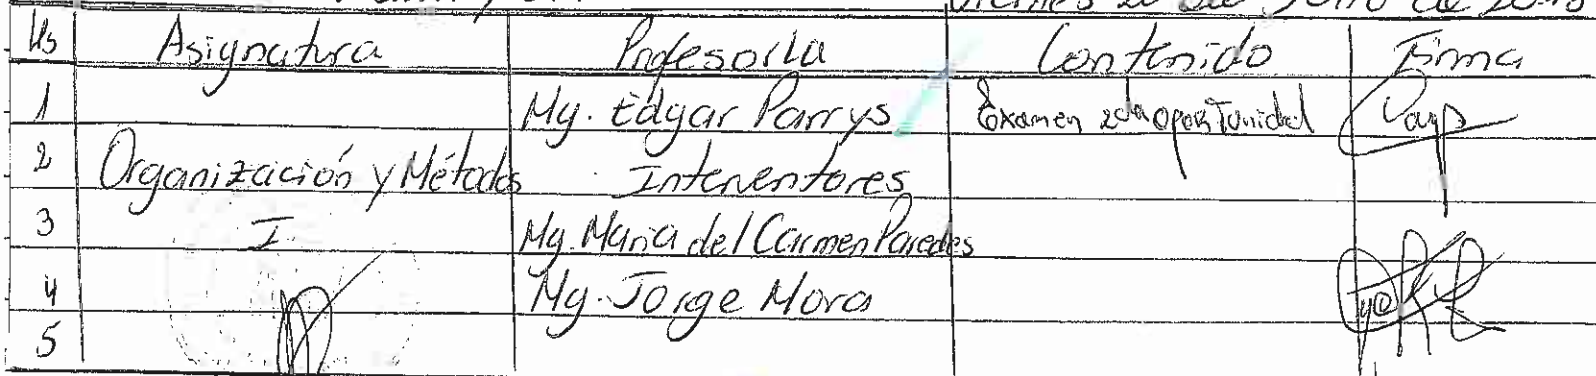 Hs Asignatura Profesor/a Contenido Firma
1 Mg. Edgar Parrys Examen 2da oportunidad
2 Organización y Métodos Interventores
3 I Mg. Maria del Carmen Paredes
4 Mg. Jorge Mora
5